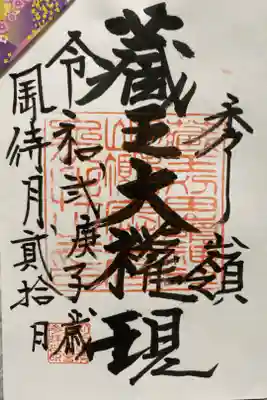 秀嶺
藏王大權現
令和弐庚子歳
風待月貳拾日